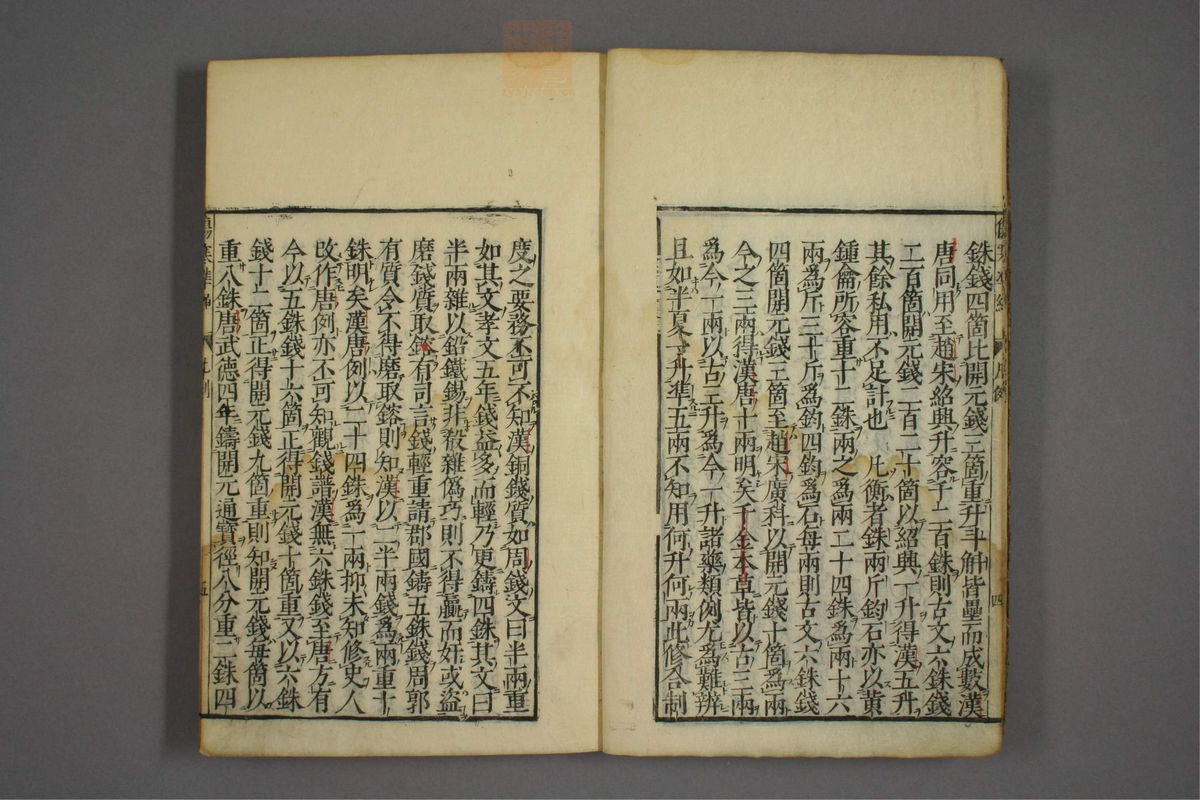 銖錢四箇比開元錢三箇重升斗斛皆壘而成數漢
唐同用至趙宋紹興升容千二百銖則古文六銖錢
二百箇開元錢一百二十箇以紹興一升得漢五升
其餘私用不足計也 凡衡者銖兩斤鈞石亦以黃
鍾侖所容重十二銖兩之爲兩二十四銖爲兩十六
兩爲斤三十斤爲鈞四鈞爲石每兩則古文六銖錢
四箇開元錢三箇至趙宋廣科以開元錢十箇爲兩
今之三兩得漢唐十兩明矣千金本草皆以古三兩
爲今一兩以古三升爲今一升諸藥類例尤爲難辨
且如半夏一升準五兩不知用何升何兩此修合制
四
度之要務不可不知漢銅錢質如周錢文曰半兩重
如其文孝文五年錢益多而輕乃更鑄四銖其文曰
半兩雜以鉛鐵錫非殽雜僞巧則不得贏而奸或盜
磨錢質取鎔有司言錢輕重請郡國鑄五銖錢周郭
有質令不得磨取鎔則知漢以一半兩錢爲兩重十
銖明矣漢唐例以二十四銖爲一兩抑未知修史人
改作唐例亦不可知觀錢譜漢無六銖錢至唐方有
今以五銖錢十六箇正得開元錢十箇重又以六銖
錢十二箇正得開元錢九箇重則知開元錢每箇以
重八銖唐武德四年鑄開元通寶徑八分重二銖四
五